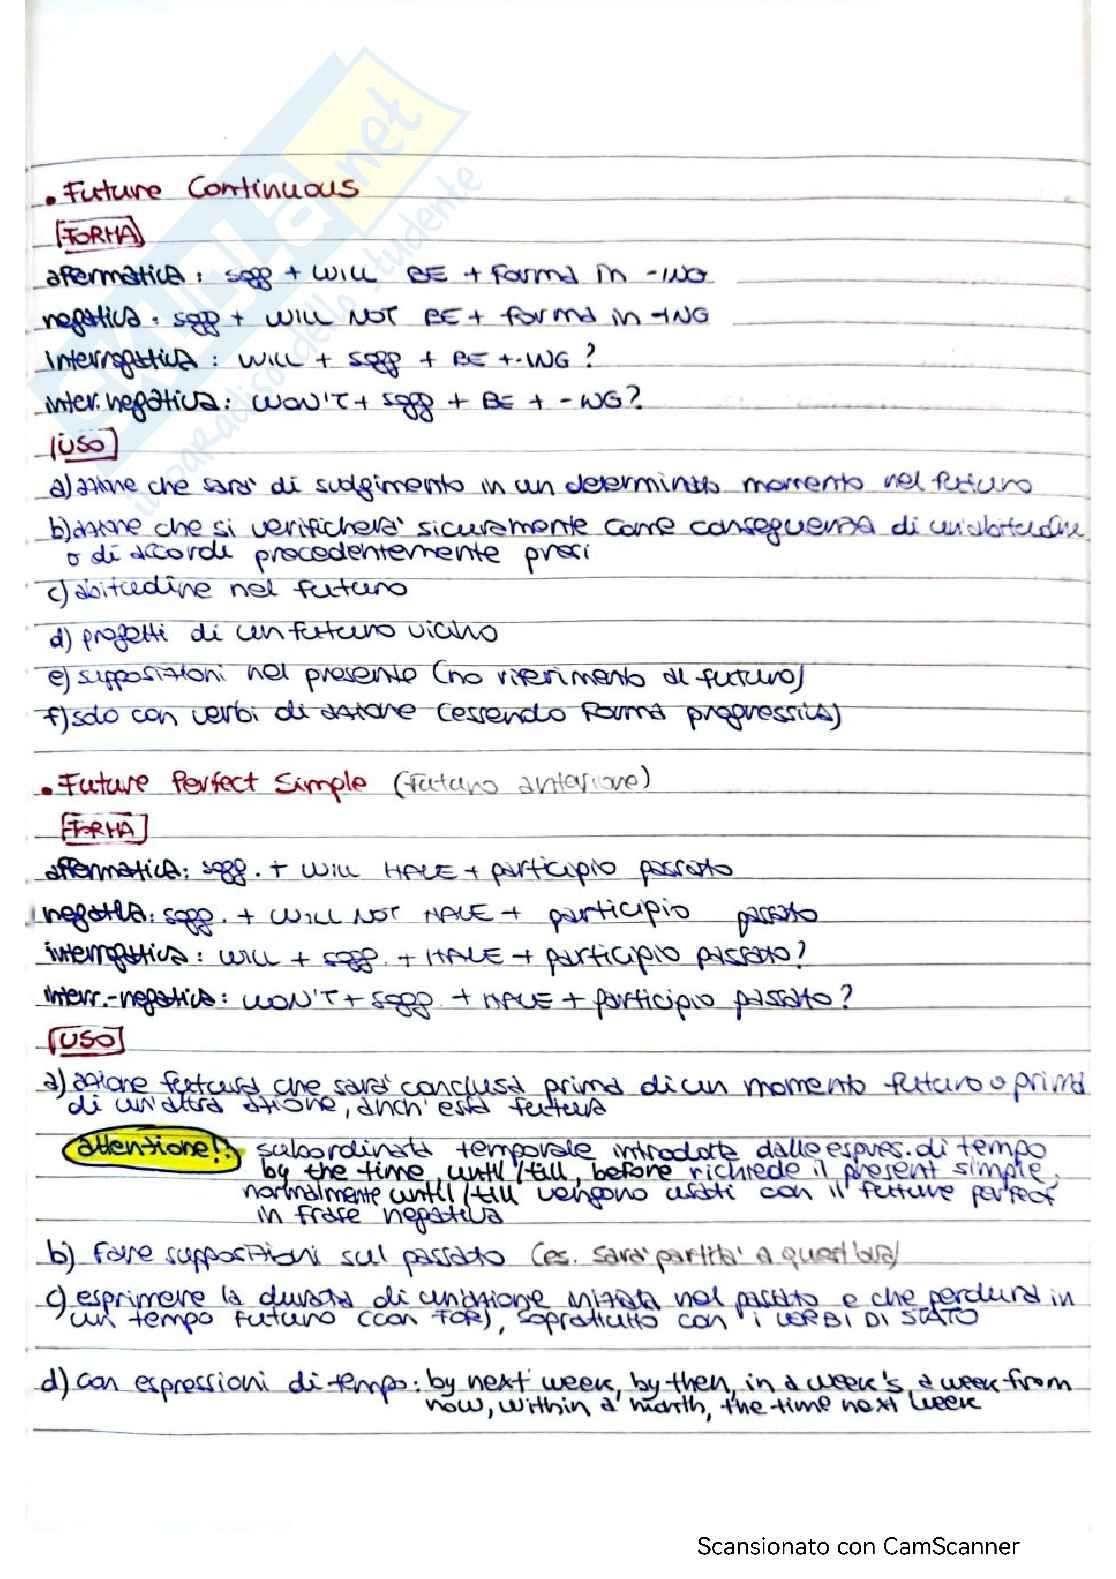 • Future Continuous
FORMA
affermativa: sogg + WILL BE + forma in -ING
negativa: sogg + WILL NOT BE + forma in -ING
interrogativa: WILL + sogg + BE + -ING?
inter. negativa: WON'T + sogg + BE + -ING?
USO
a) azione che sarà di svolgimento in un determinato momento nel futuro
b) azione che si verificherà sicuramente come conseguenza di un'abitudine
o di accordi precedentemente presi
c) abitudine nel futuro
d) progetti di un futuro vicino
e) supposizioni nel presente (no riferimento al futuro)
f) solo con verbi di azione (essendo forma progressiva)
• Future Perfect Simple (futuro anteriore)
FORMA
affermativa: sogg. + WILL HAVE + participio passato
negativa: sogg. + WILL NOT HAVE + participio passato
interrogativa: WILL + sogg. + HAVE + participio passato?
interr.-negativa: WON'T + sogg. + HAVE + participio passato?
USO
a) azione futura che sarà conclusa prima di un momento futuro o prima
di un'altra azione, anch'essa futura
attentione!: subordinata temporale introdotta dalle espres. di tempo
by the time, until/till, before richiede il present simple.
normalmente until/till vengono usati con il future perfect
in frase negativa
b) fare supposizioni sul passato (es. sarà partita a quest'ora)
c) esprimere la durata di un'azione iniziata nel passato e che perdura in
un tempo futuro (con FOR), sopratutto con i VERBI DI STATO
d) con espressioni di tempo: by next week, by then, in a week's, a week from
now, within a month, the time next week
skuola.net
il paradiso dello studente
Scansionato con CamScanner